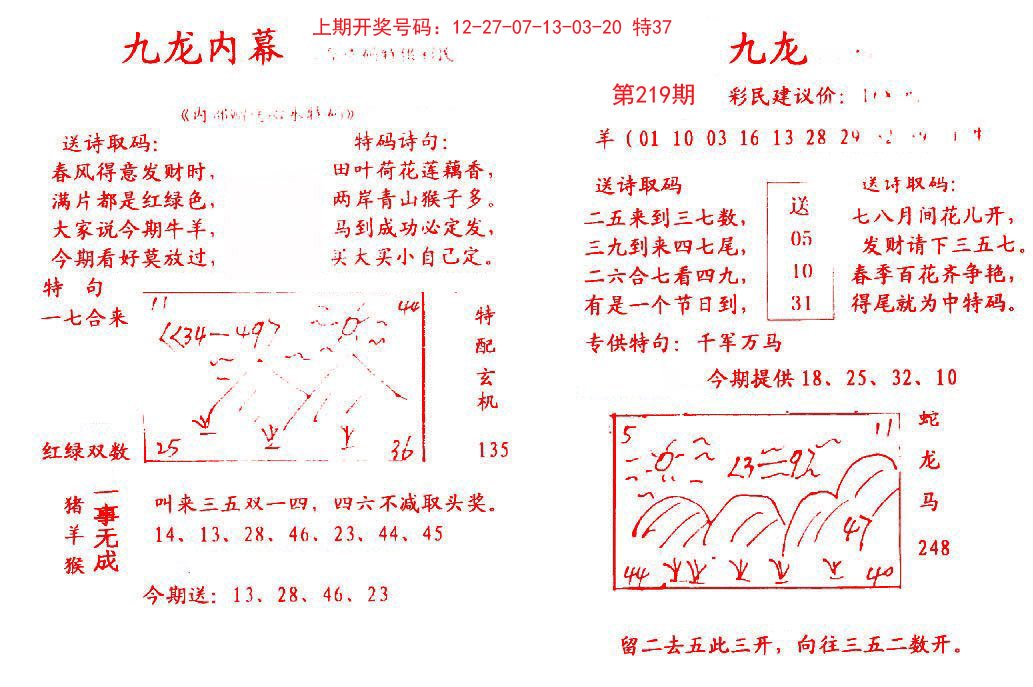 上期开奖号码: 12-27-07-13-03-20 特37
九龙内幕
送诗取码:
春风得意发财时,
满片都是红绿色,
大家说今期牛羊,
今期看好莫放过,
特码诗句:
田叶荷花莲藕香,
两岸青山猴子多。
马到成功必定发,
买大买小自己定。
特 句
一七合来
红绿双数
11
44
34—49
25
36
特
配
玄
机
135
猪
羊
猴
一事无成
叫来三五双一四, 四六不减取头奖。
14、13、28、46、23、44、45
今期送: 13、28、46、23
九龙
第219期
彩民建议价:
羊 (01 10 03 16 13 28 29
送诗取码
二五来到三七数,
三九到来四七尾,
二六合七看四九,
有是一个节日到,
送
05
10
31
送诗取码:
七八月间花儿开,
发财请下三五七。
春季百花齐争艳,
得尾就为中特码。
专供特句: 千军万马
今期提供 18、25、32、10
5
11
47
44
40
蛇
龙
马
248
留二去五此三开, 向往三五二数开。